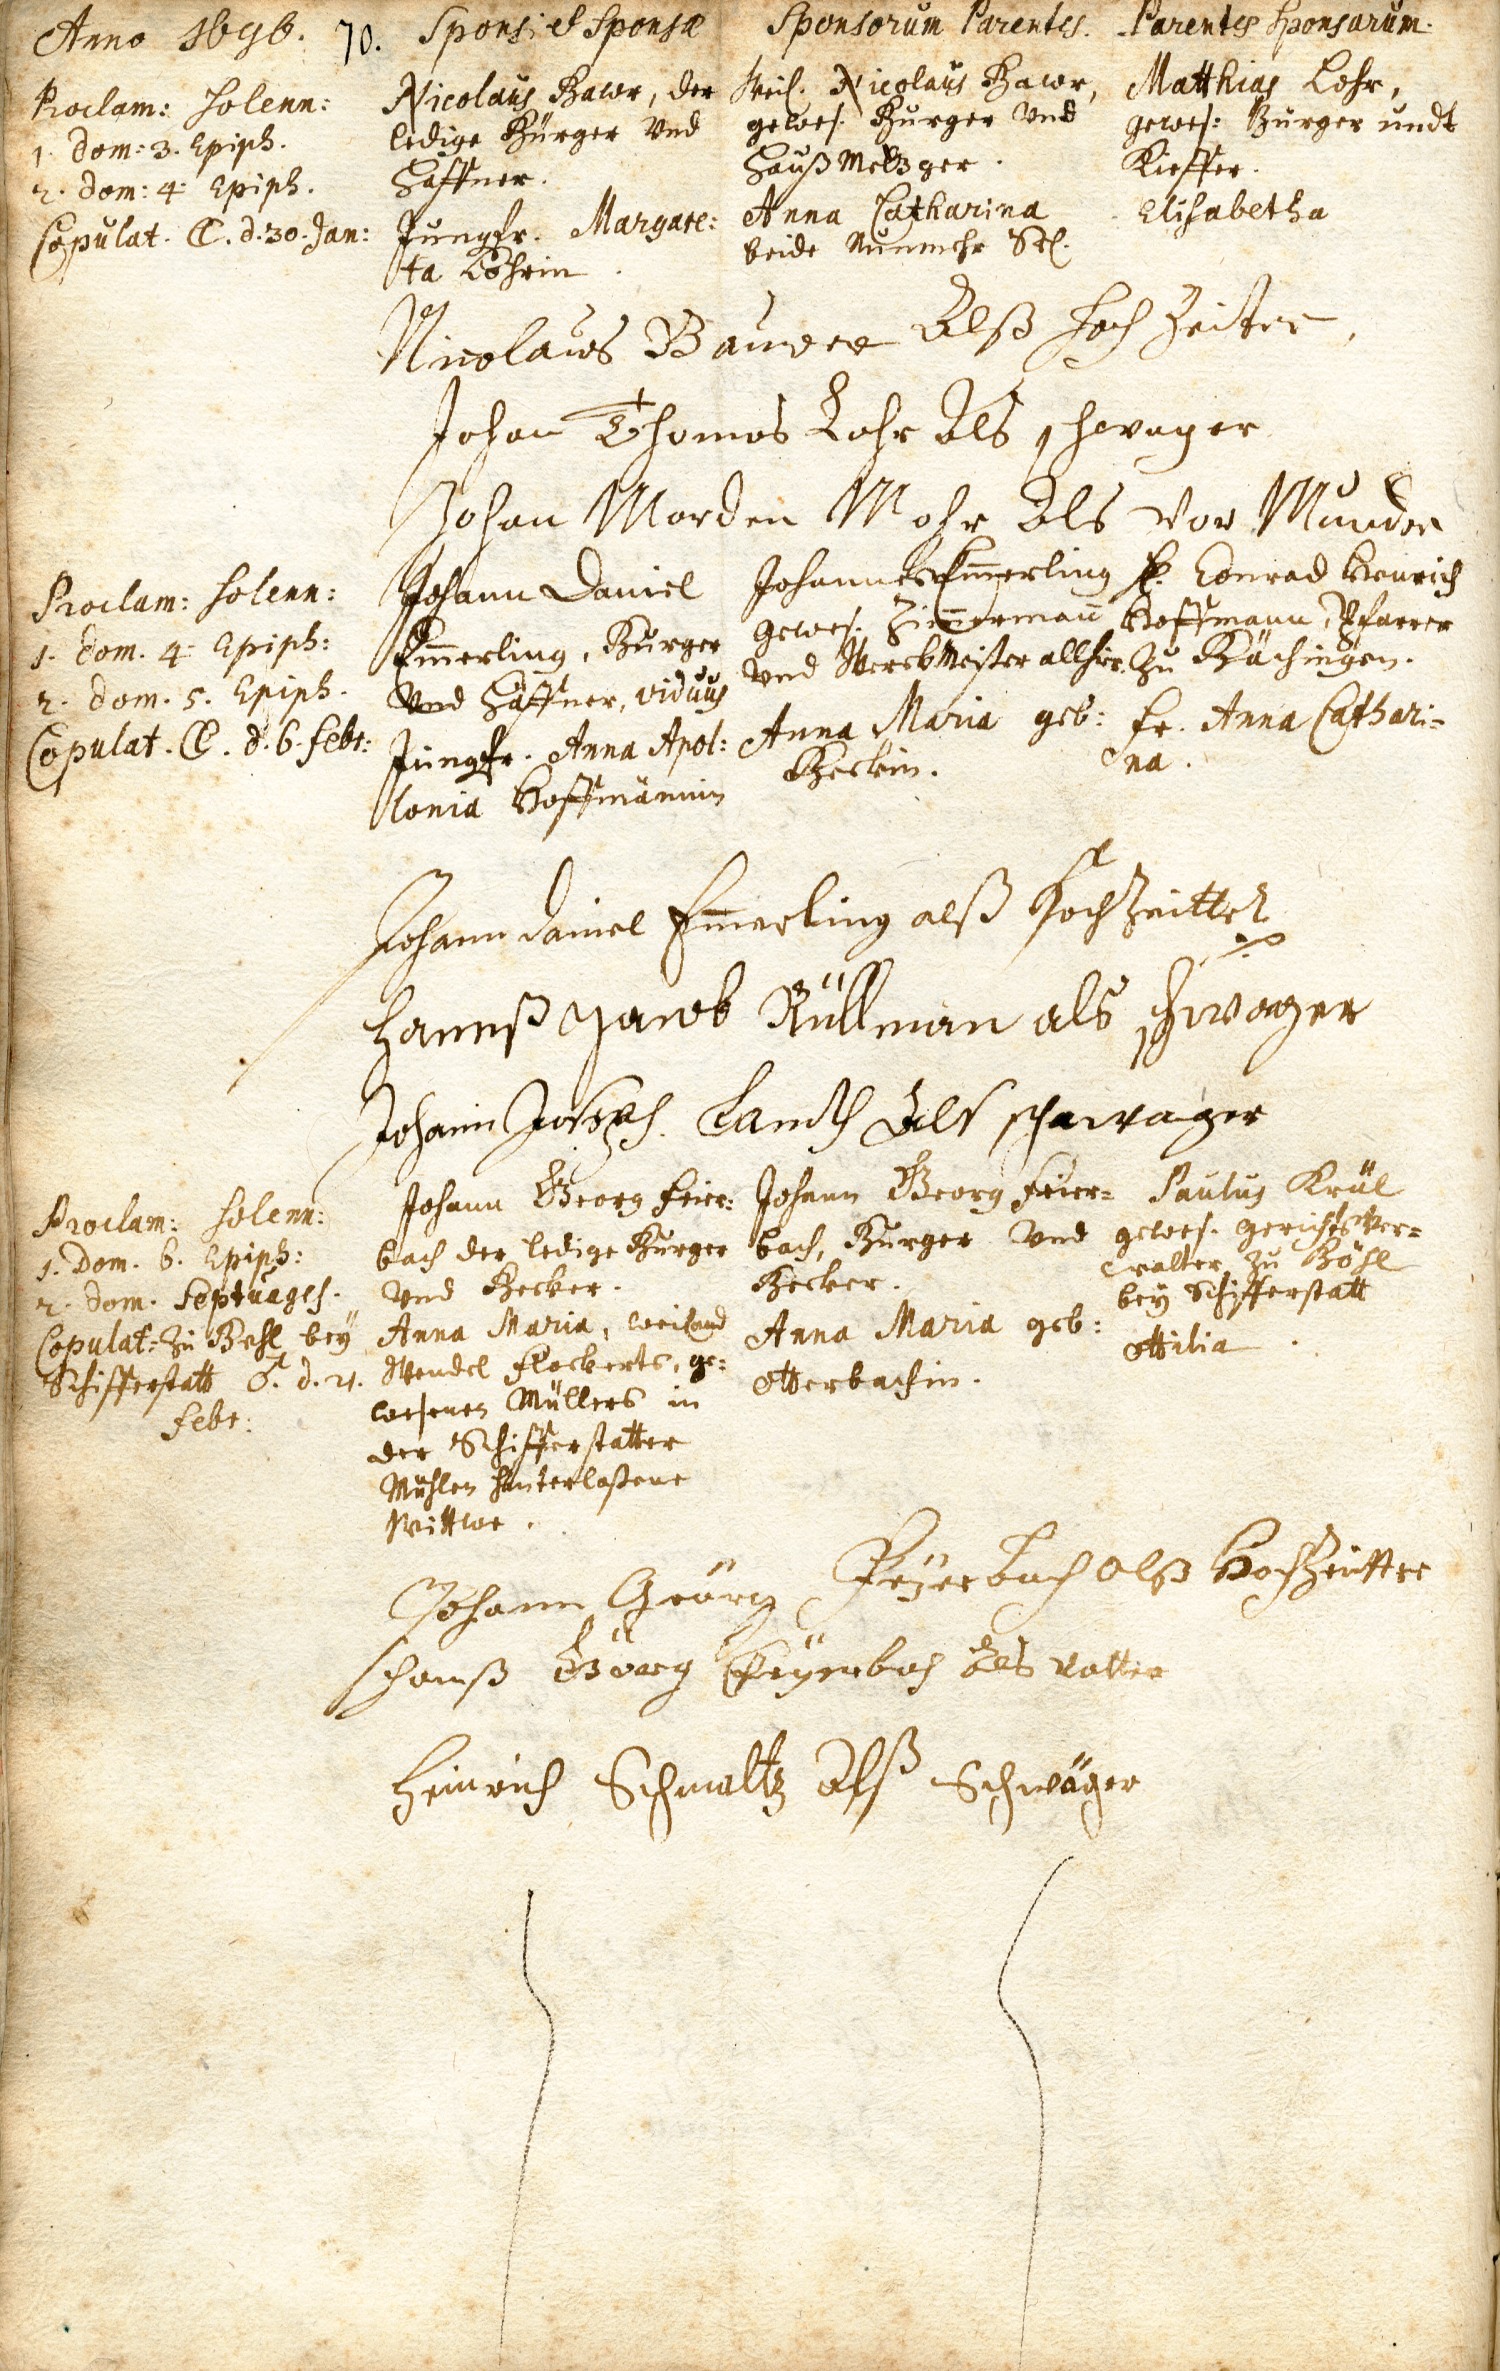 Anno 1696. 70. Sponsi et Sponsæ Sponsorum Parentes. Parentes Sponsarum.
Proclam: solenn:
1. Dom: 3. Epiph.
2. Dom: 4. Epiph.
Copulat. ☾. d. 30. Jan:
Nicolaus Bawr, der
ledige Burger und
Haffner.
Jungfr. Margare:
ta Löhrin.
Weil. Nicolaus Bawr,
gewes. Burger und
Haußmetzger.
Anna Catharina
beide nunmehr Sel.
Matthias Lohr,
gewes: Burger undt
Kieffer.
Elisabetha
Nicolaus Bauer Alß Hoch Zeiter,
Johan Thomas Lohr Als schwager
Johan Morden Mohr Als vor Munder
Proclam: solenn:
1. Dom. 4. Epiph:
2. Dom. 5. Epiph.
Copulat. ☾. d. 6. Febr:
Johann Daniel
Em̄erling, Burger
und Haffner, viduus
Jungfr. Anna Apol:
lonia Hoffmännin
Johannes Em̄erling
gewes. Zim̄erman̄
und Werckmeister allhier.
Anna Maria geb:
Beckin.
H. Conrad Henrich
Hoffmann, Pfarrer
zu Bächingen.
Fr. Anna Cathari-
na.
Johann Daniel Em̄erling alß Hochzeitter
Hannß Jacob Rüllman als schwager
Johann Joseph Als schawager
Proclam: solenn:
1. Dom. 6. Epiph:
2. Dom. Septuages.
Copulat: zu Behl bey
Schifferstatt ♂. d. 21.
Febr:
Johann Georg Feier:
bach der ledige Burger
und Becker.
Anna Maria, weiland
Wendel Flockerts, ge:
wesenen Müllers in
der Schifferstatter
Mühlen hinterlaßene
Wittwe.
Johann Georg Feier=
bach, Burger und
Becker.
Anna Maria geb:
Otterbachin.
Paulus Krül
gewes. Gerichts Ver=
walter zu Böhl
bey Schifferstatt
Ottilia.
Johann Geörg Feÿerbach alß Hochzeitter
Görg Feÿerbach Als vatter
Heinrich Schmaltz Alß Schwäger